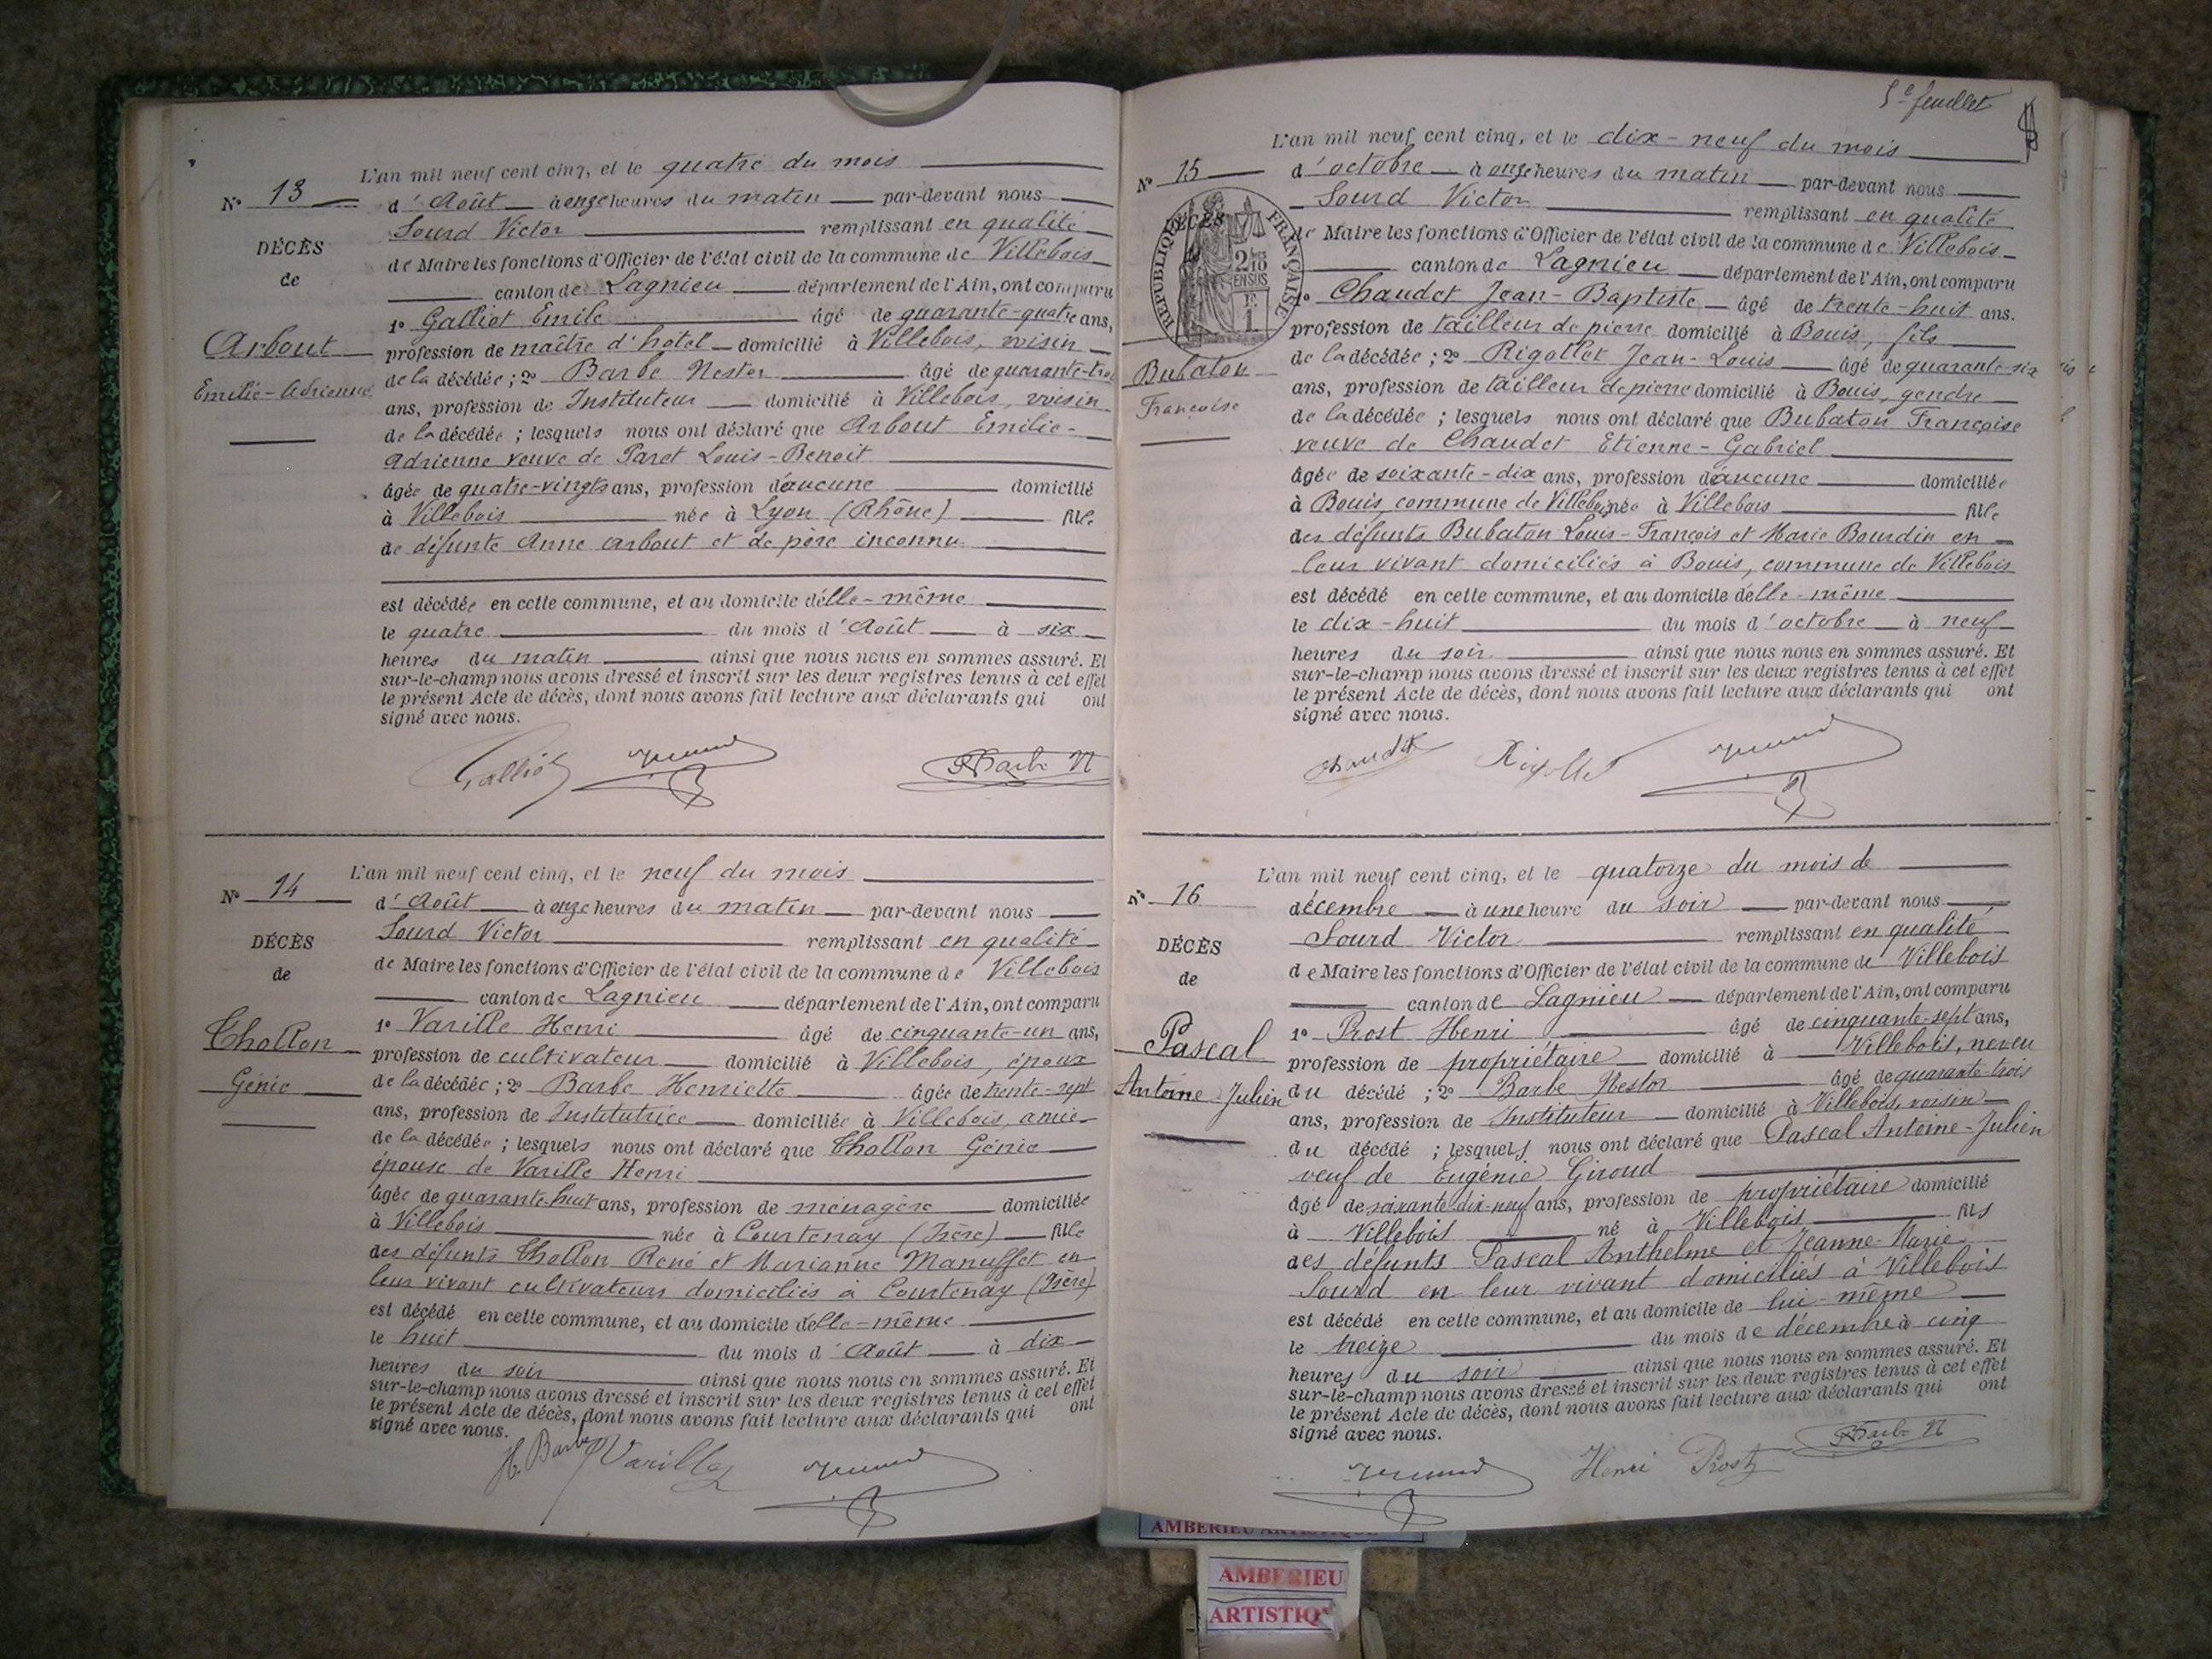 L'an mil neuf cent cinq, et le quatre du mois
N° 13
d'Août à onze heures du matin par-devant nous
Sourd Victor remplissant en qualité
DÉCÈS
de Maire les fonctions d'Officier de l'état civil de la commune de Villebois
de
canton de Lagnieu département de l'Ain, ont comparu
1° Galliot Emile âgé de quarante-quatre ans,
Arbout
profession de maître d'hotel domicilié à Villebois, voisin
Emilie-Adrienne
de la décédée ; 2° Barbe Nestor âgé de quarante-trois
ans, profession de Instituteur domicilié à Villebois, voisin
de la décédée ; lesquels nous ont déclaré que Arbout Emilie-
Adrienne veuve de Paret Louis-Benoit
âgée de quatre-vingts ans, profession d'aucune domicilié
à Villebois née à Lyon (Rhône) fille
de défunte Anne Arbout et de père inconnu
est décédée en cette commune, et au domicile d'elle-même
le quatre du mois d'Août à six
heures du matin ainsi que nous nous en sommes assuré. Et
sur-le-champ nous avons dressé et inscrit sur les deux registres tenus à cet effet
le présent Acte de décès, dont nous avons fait lecture aux déclarants qui ont
signé avec nous.
Galliot Barbe N
L'an mil neuf cent cinq, et le neuf du mois
N° 14
d'Août à onze heures du matin par-devant nous
Sourd Victor remplissant en qualité
DÉCÈS
de Maire les fonctions d'Officier de l'état civil de la commune de Villebois
de
canton de Lagnieu département de l'Ain, ont comparu
1° Varille Henri âgé de cinquante-un ans,
Thollon
profession de cultivateur domicilié à Villebois, époux
Génie
de la décédée ; 2° Barbe Henriette âgée de trente-sept
ans, profession de Institutrice domiciliée à Villebois, amie
de la décédée ; lesquels nous ont déclaré que Thollon Génie
épouse de Varille Henri
âgée de quarante-huit ans, profession de ménagère domiciliée
à Villebois née à Courtenay (Isère) fille
des défunts Thollon René et Marianne Manuffet en
leur vivant cultivateurs domiciliés à Courtenay (Isère)
est décédé en cette commune, et au domicile d'elle-même
le huit du mois d'Août à dix
heures du soir ainsi que nous nous en sommes assuré. Et
sur-le-champ nous avons dressé et inscrit sur les deux registres tenus à cet effet
le présent Acte de décès, dont nous avons fait lecture aux déclarants qui ont
signé avec nous.
H. Barbe Varille
5e feuillet
L'an mil neuf cent cinq, et le dix-neuf du mois
N° 15
d'octobre à onze heures du matin par-devant nous
Sourd Victor remplissant en qualité
DÉCÈS
de Maire les fonctions d'Officier de l'état civil de la commune de Villebois
RÉPUBLIQUE FRANÇAISE
2/10 EN SUS
1 F.
canton de Lagnieu département de l'Ain, ont comparu
1° Chaudet Jean-Baptiste âgé de trente-huit ans.
profession de tailleur de pierre domicilié à Bouis, fils
Bubaton
de la décédée ; 2° Rigollet Jean-Louis âgé de quarante-six
Françoise
ans, profession de tailleur de pierre domicilié à Bouis, gendre
de la décédée ; lesquels nous ont déclaré que Bubaton Françoise
veuve de Chaudet Etienne-Gabriel
âgée de soixante-dix ans, profession d'aucune domiciliée
à Bouis, commune de Villebois née à Villebois fille
des défunts Bubaton Louis-François et Marie Bourdin en
leur vivant domiciliés à Bouis, commune de Villebois
est décédé en cette commune, et au domicile d'elle-même
le dix-huit du mois d'octobre à neuf
heures du soir ainsi que nous nous en sommes assuré. Et
sur-le-champ nous avons dressé et inscrit sur les deux registres tenus à cet effet
le présent Acte de décès, dont nous avons fait lecture aux déclarants qui ont
signé avec nous.
Chaudet Rigollet
L'an mil neuf cent cinq, et le quatorze du mois de
N° 16
décembre à une heure du soir par-devant nous
Sourd Victor remplissant en qualité
DÉCÈS
de Maire les fonctions d'Officier de l'état civil de la commune de Villebois
de
canton de Lagnieu département de l'Ain, ont comparu
1° Prost Henri âgé de cinquante-sept ans,
Pascal
profession de propriétaire domicilié à Villebois, neveu
Antoine-Julien
du décédé ; 2° Barbe Nestor âgé de quarante-trois
ans, profession de Instituteur domicilié à Villebois, voisin
du décédé ; lesquels nous ont déclaré que Pascal Antoine-Julien
veuf de Eugénie Giroud
âgé de soixante-dix-neuf ans, profession de propriétaire domicilié
à Villebois né à Villebois fils
des défunts Pascal Anthelme et Jeanne-Marie
Sourd en leur vivant domiciliés à Villebois
est décédé en cette commune, et au domicile de lui-même
le treize du mois de décembre à cinq
heures du soir ainsi que nous nous en sommes assuré. Et
sur-le-champ nous avons dressé et inscrit sur les deux registres tenus à cet effet
le présent Acte de décès, dont nous avons fait lecture aux déclarants qui ont
signé avec nous.
Henri Prost Barbe N
AMBERIEU ARTISTIQUE
AMBERIEU
ARTISTIQ